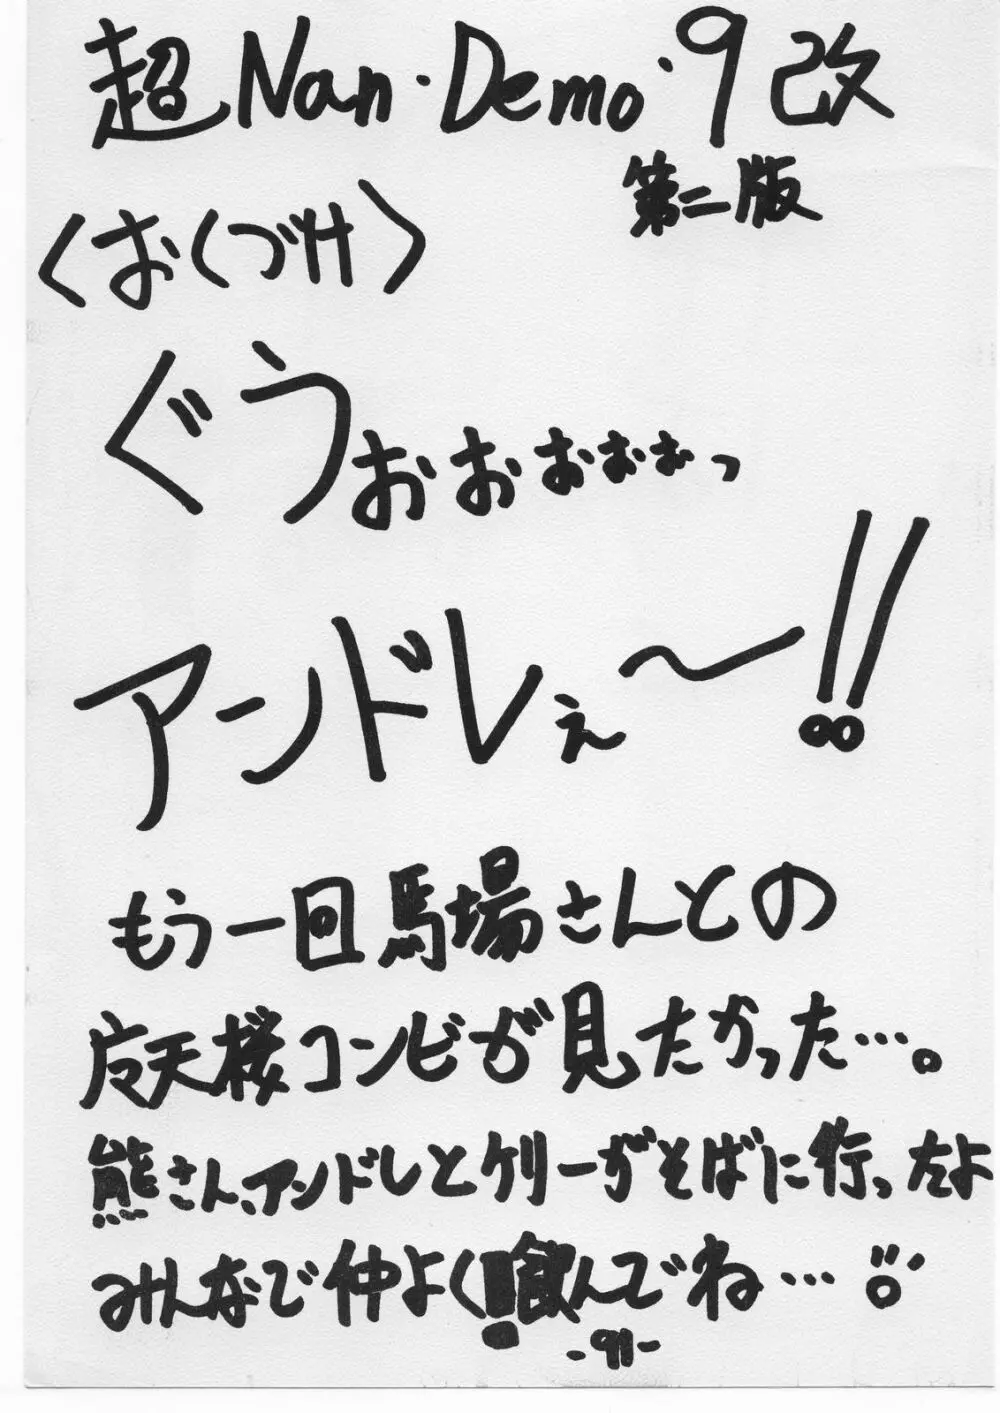 超Nan・Demo・9改
第二版
〈おくづけ〉
ぐうぉぉぉぉぉっ
アンドレぇ〜!!
もう一回馬場さんとの
天様コンビが見たかった…。
熊さん、アンドレとケリーがそばに行ったよ
みんなで仲よく飲んでね…
-91-